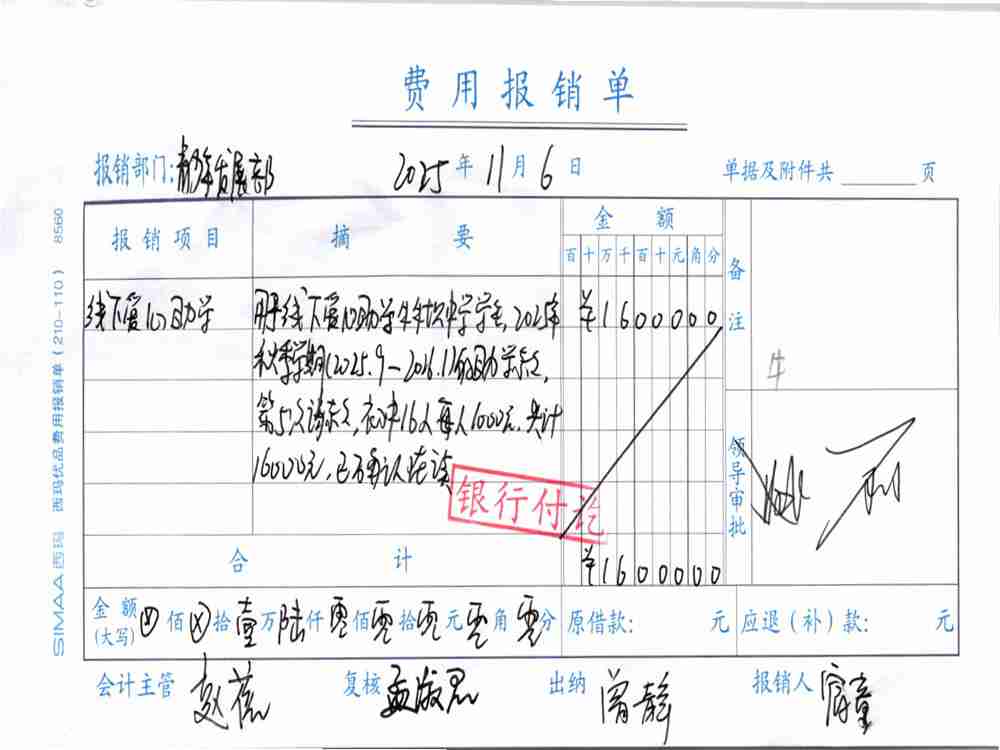 费用报销单
报销部门:青少年发展部 2025年11月6日 单据及附件共 页
报销项目 摘要 金额 备注
百十万千百十元角分
线下爱心助学 用于线下爱心助学牛坎中学学生,2025年 ¥1600000
秋季学期(2025.9-2026.1)的助学款,
第5次请款,初中16人每人1000元,共计
16000元,已方确认在读
银行付讫
领导审批
合计 ¥1600000
金额(大写)⊗佰⊗拾壹万陆仟零佰零拾零元零角零分 原借款: 元 应退(补)款: 元
会计主管 赵蓓 复核 孟淑思 出纳 曾静 报销人
SIMAA 西玛 西玛优品费用报销单(210-110) 8560